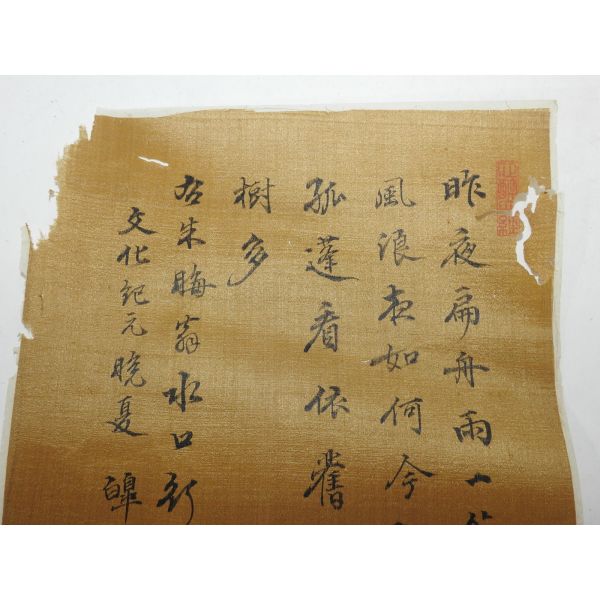 昨夜扁舟雨一
風浪夜如何今
孤蓬看依舊
樹多
右朱晦翁水口行
文化紀元晩夏 皐